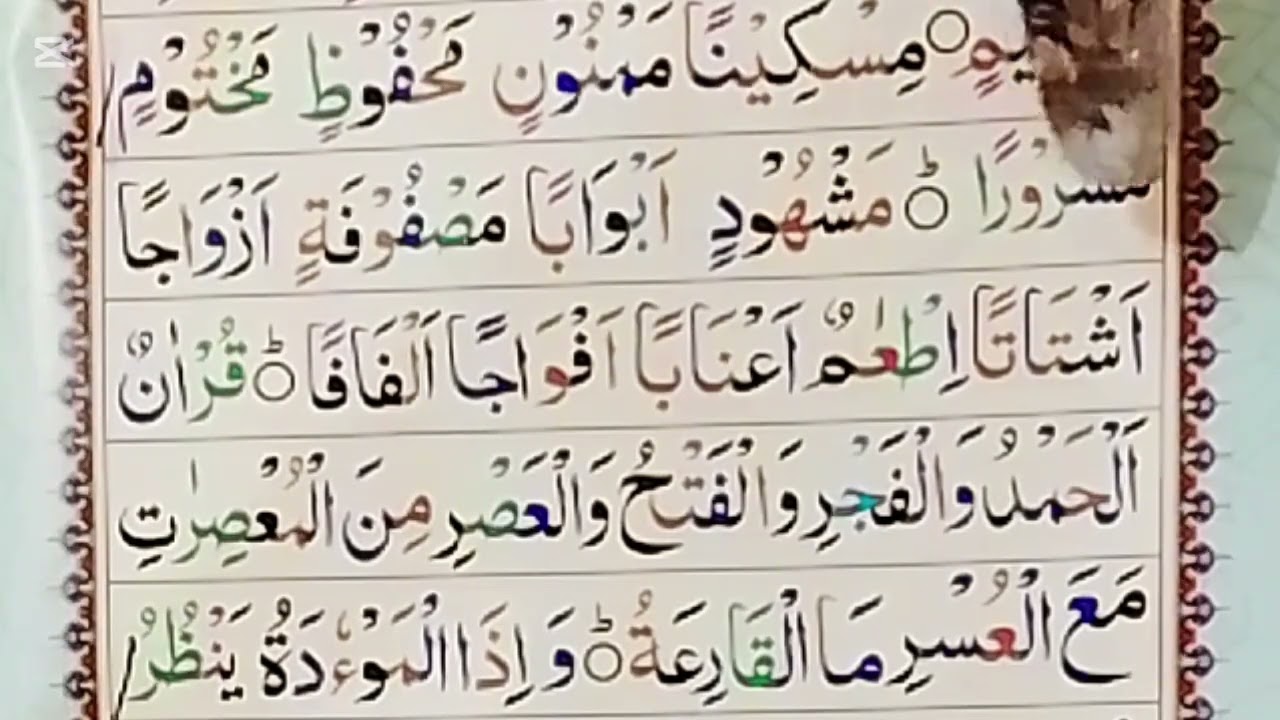 مِسْكِيْنًا مَمْنُوْنٍ مَحْفُوْظٍ مَخْتُوْمٍ
مَسْرُوْرًا ؕ مَشْهُوْدٍ اَبْوَابًا مَصْفُوْفَةٍ اَزْوَاجًا
اَشْتَاتًا اِطْعٰمٌ اَعْنَابًا اَفْوَاجًا اَلْفَافًا ؕ قُرْاٰنٌ
اَلْحَمْدُ وَالْفَجْرِ وَالْفَتْحُ وَالْعَصْرِ مِنَ الْمُعْصِرٰتِ
مَعَ الْعُسْرِ مَا الْقَارِعَةُ ؕ وَ اِذَا الْمَوْءٗدَةُ يَنْظُرُ